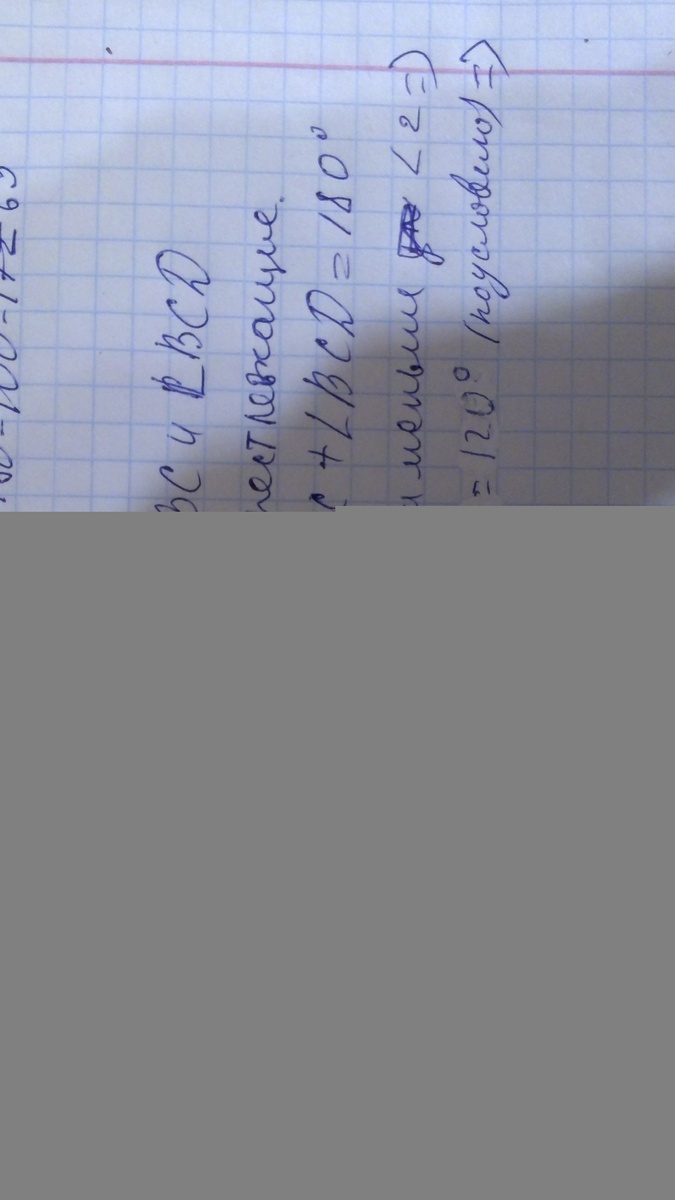 BC и ∠BCD
крестлежащие.
+ ∠BCD = 180°
меньше ∠2 =>
= 120° (по условию) =>